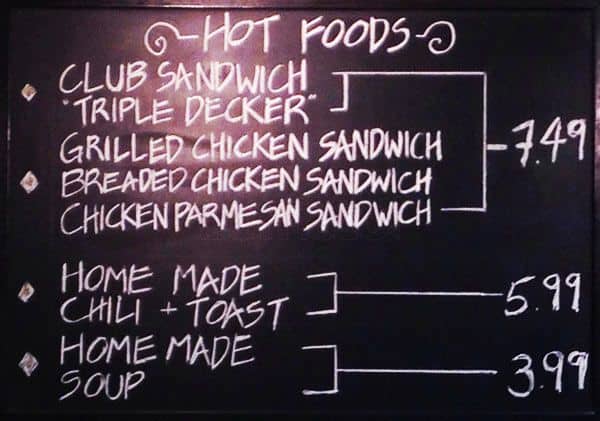 HOT FOODS
CLUB SANDWICH
"TRIPLE DECKER"
GRILLED CHICKEN SANDWICH
7.49
BREADED CHICKEN SANDWICH
CHICKEN PARMESAN SANDWICH
HOME MADE
CHILI + TOAST
5.99
HOME MADE
SOUP
3.99